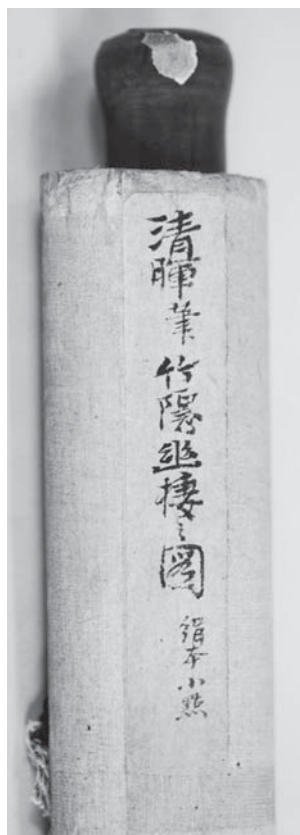 清暉筆竹隠幽棲之圖 絹本小點